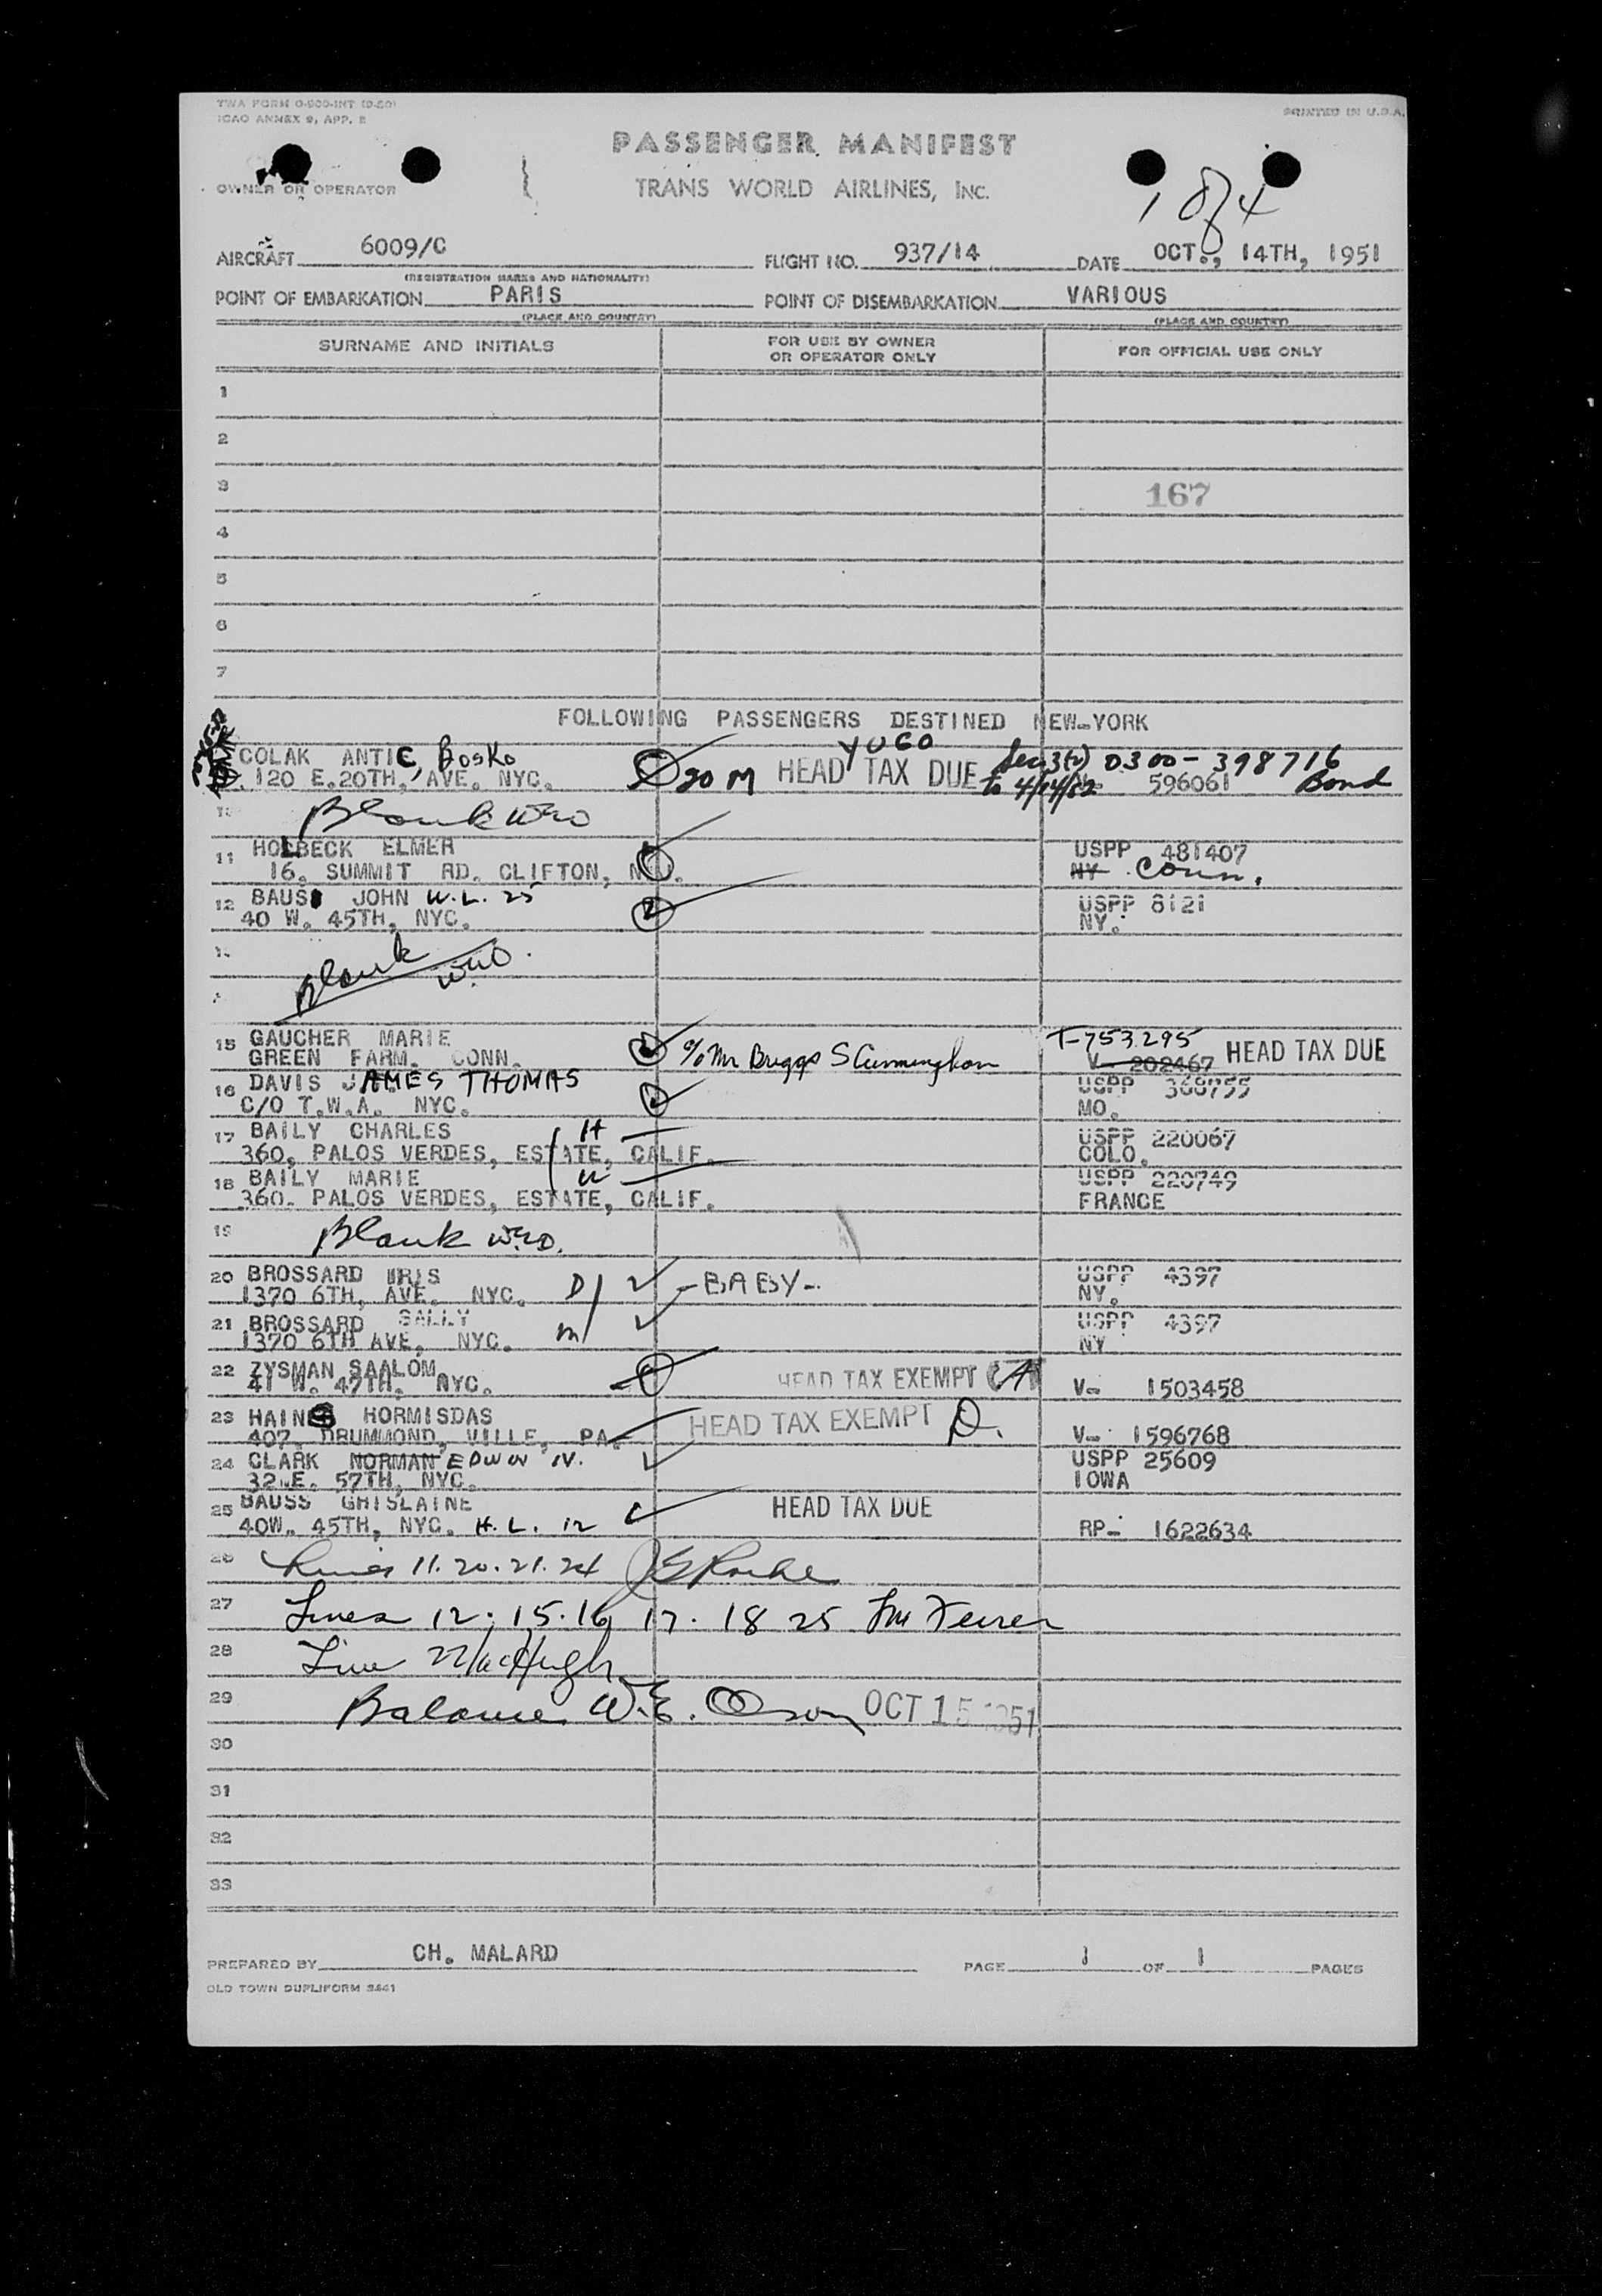 TWA FORM O-900-INT (9-50)
ICAO ANNEX 9, APP. E
PRINTED IN U.S.A.
PASSENGER MANIFEST
OWNER OR OPERATOR
TRANS WORLD AIRLINES, INC.
1 of 4
AIRCRAFT 6009/C FLIGHT NO. 937/14 DATE OCT., 14TH, 1951
(REGISTRATION MARKS AND NATIONALITY)
POINT OF EMBARKATION PARIS POINT OF DISEMBARKATION VARIOUS
(PLACE AND COUNTRY) (PLACE AND COUNTRY)
SURNAME AND INITIALS FOR USE BY OWNER OR OPERATOR ONLY FOR OFFICIAL USE ONLY
1
2
3 167
4
5
6
7
FOLLOWING PASSENGERS DESTINED NEW-YORK
COLAK ANTIC, Bosko YUGO Sec 3(2) 0300-398716
120 E.20TH, AVE. NYC. 20 M HEAD TAX DUE to 4/14/52 596061 Bond
Blank WEO
11 HOLBECK ELMER USPP 481407
16, SUMMIT RD. CLIFTON, N.J. NY Conn.
12 BAUSS JOHN W.L. 25 2 USPP 8121
40 W. 45TH, NYC. NY.
Blank WEO.
15 GAUCHER MARIE T-753295
GREEN FARM. CONN. c/o Mr Briggs S Cunningham V- 202467 HEAD TAX DUE
16 DAVIS JAMES THOMAS USPP 368755
C/O T.W.A. NYC. MO.
17 BAILY CHARLES H USPP 220067
360, PALOS VERDES, ESTATE, CALIF. COLO.
18 BAILY MARIE W USPP 220749
360. PALOS VERDES, ESTATE, CALIF. FRANCE
19 Blank WEO.
20 BROSSARD IRIS D -BABY- USPP 4397
1370 6TH, AVE. NYC. NY.
21 BROSSARD SALLY M USPP 4397
1370 6TH AVE, NYC. NY
22 ZYSMAN SAALOM HEAD TAX EXEMPT
41 W. 47TH, NYC. V- 1503458
23 HAINES HORMISDAS HEAD TAX EXEMPT D.
407, DRUMMOND, VILLE, PA. V- 1596768
24 CLARK NORMAN EDWIN IV. USPP 25609
32.E. 57TH, NYC. IOWA
25 BAUSS GHISLAINE HEAD TAX DUE
40W. 45TH, NYC. H.L. 12 RP- 1622634
26 Lines 11. 20. 21. 24
27 Lines 12. 15. 16 17. 18 25
28 Line
29 Balance W.E. Olson OCT 15 1951
30
31
32
33
PREPARED BY CH. MALARD PAGE 1 OF 1 PAGES
OLD TOWN DUPLIFORM 3441